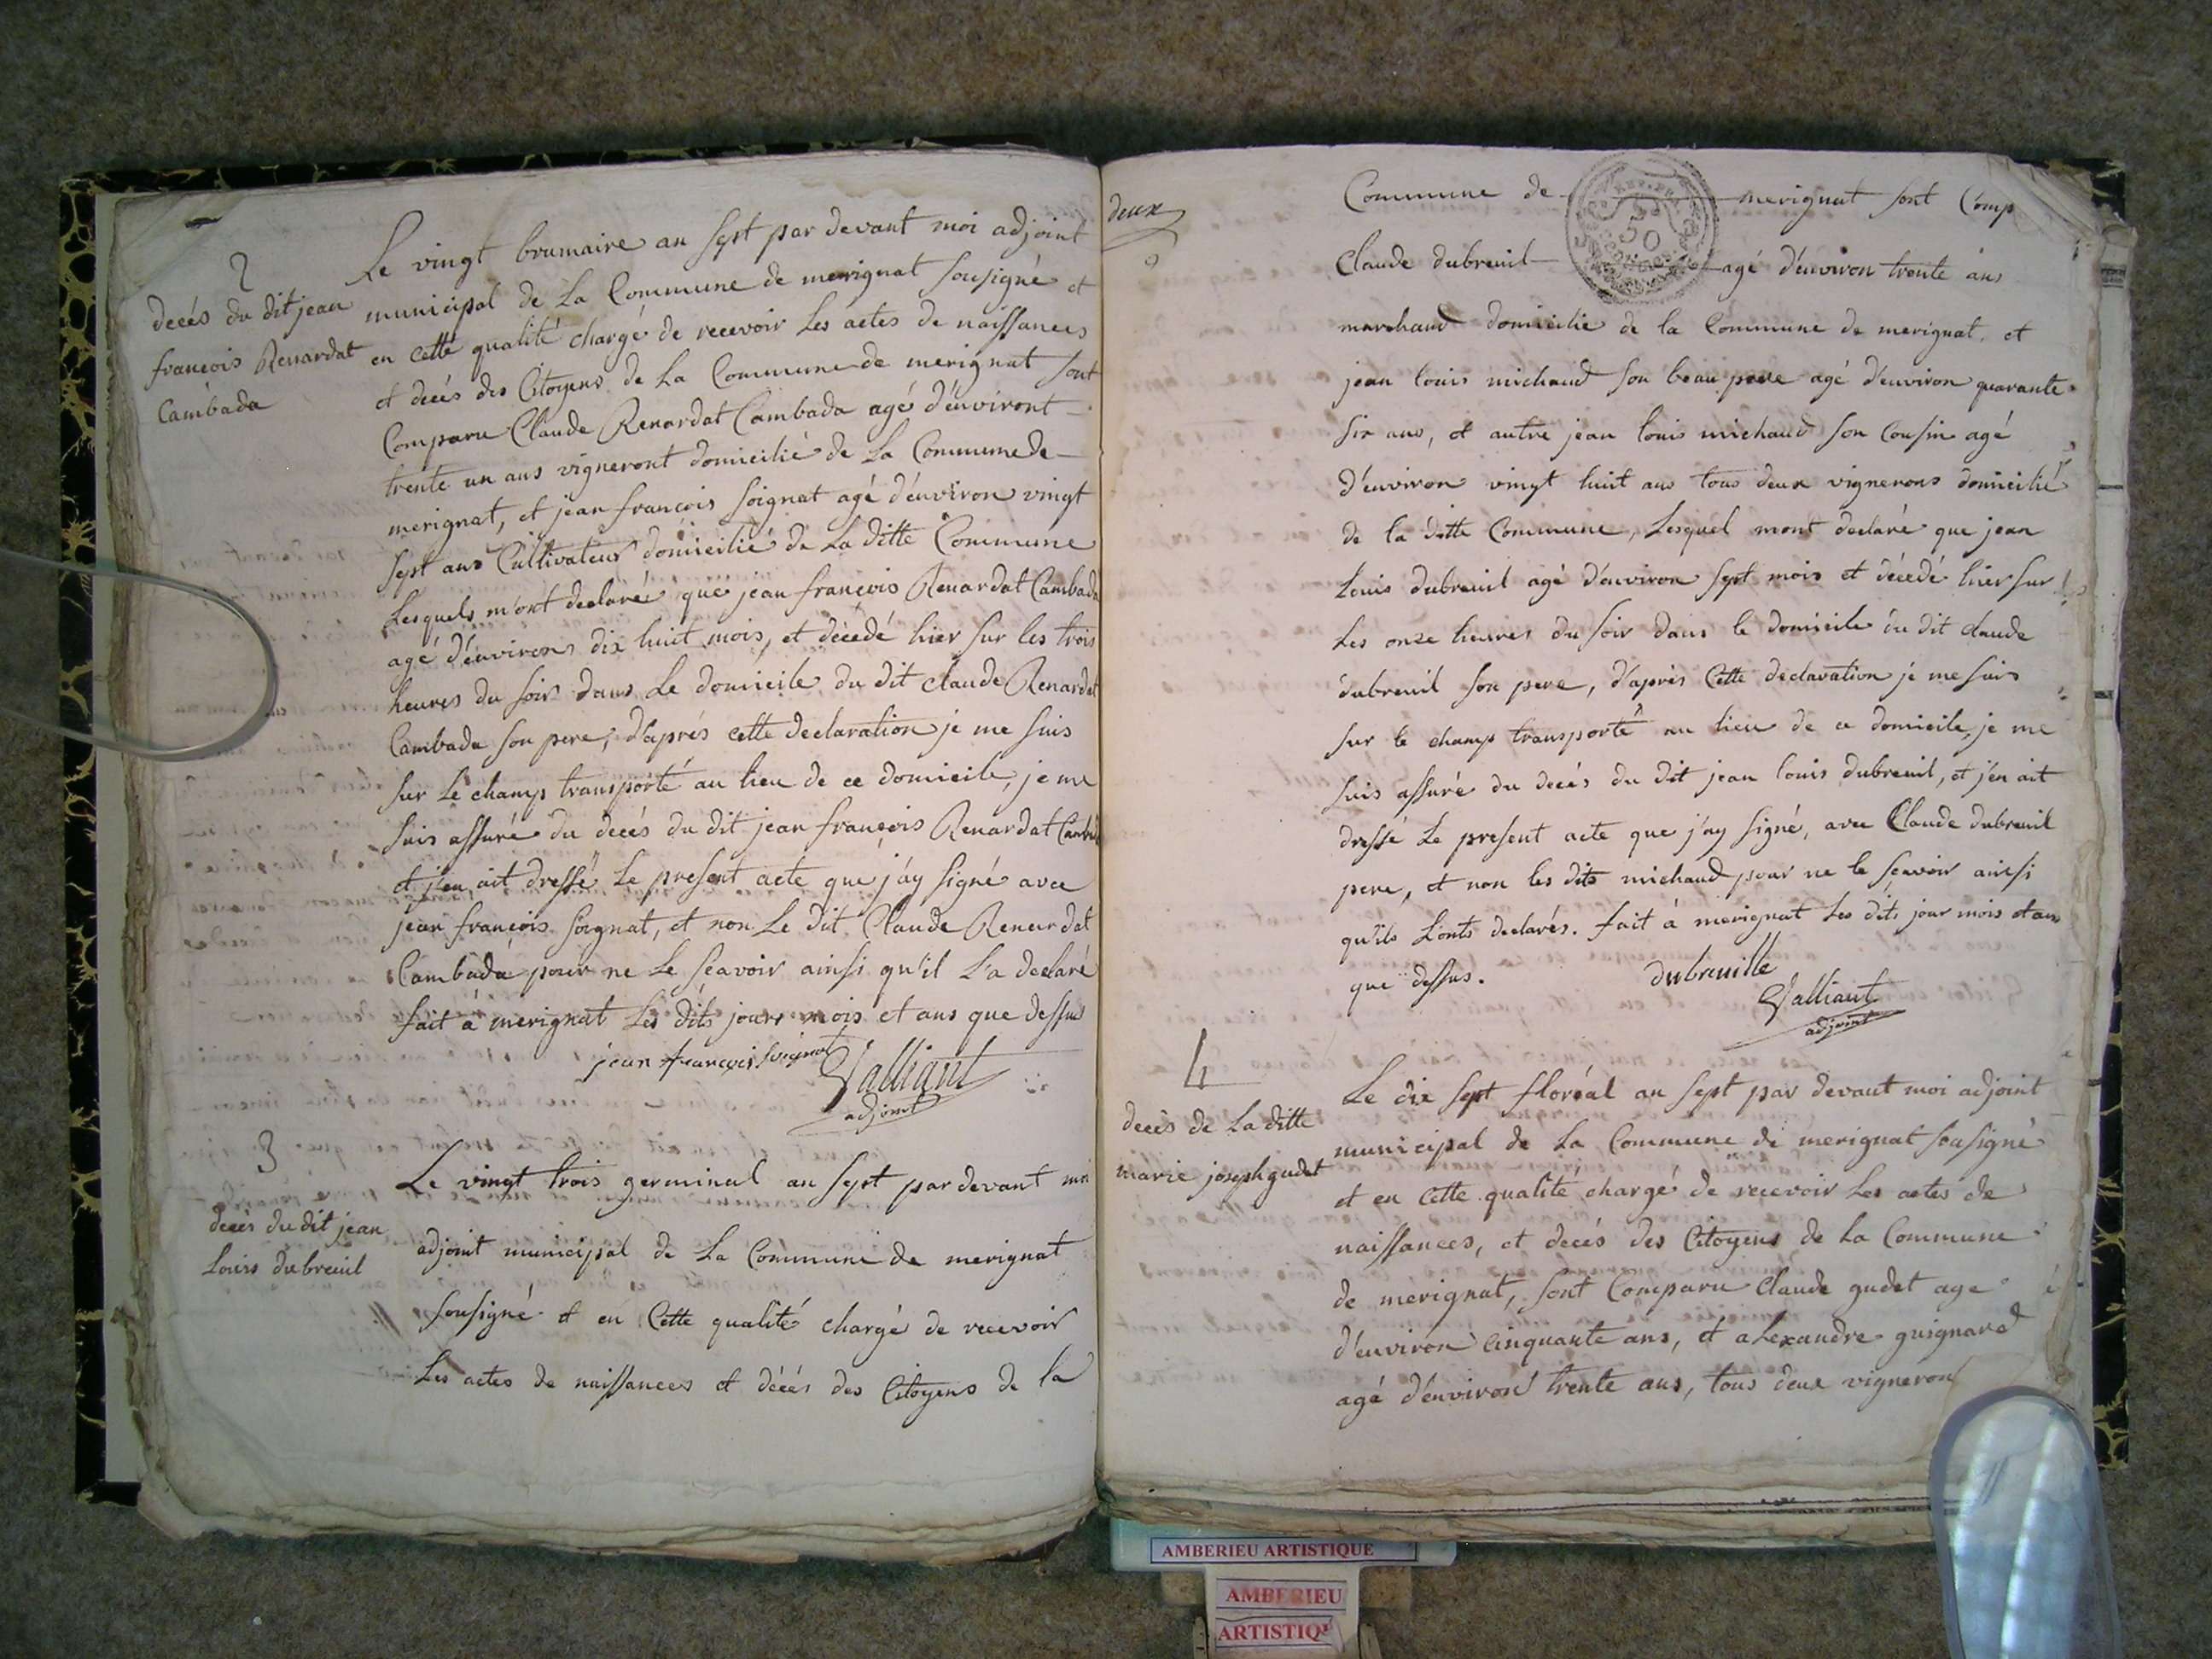 2
decés du dit jean
françois Renardat
Cambada
Le vingt brumaire an sept par devant moi adjoint
municipal de La Commune de merignat sousigné et
en cette qualité chargé de recevoir Les actes de naissances
et decés des Citoyens de La Commune de merignat sont
Comparu Claude Renardat Cambada agé d'environt
trente un ans vigneront domicilié de La Commune de
merignat, et jean françois Soignat agé d'environ vingt
sept ans Cultivateur domicilié de La ditte Commune
Lesquels m'ont declarés que jean françois Renardat Cambada
agé d'environs dix huit mois, et décedé hier sur les trois
heures du soir dans Le domicile du dit claude Renardat
Cambada son pere, d'aprés cette declaration je me suis
sur Le champ transporté au lieu de ce domicile, je me
suis assuré du decés du dit jean françois Renardat
et j'en ait dressé Le present acte que j'ay signé avec
jean françois Soignat, et non Le dit Claude Renardat
Cambada pour ne Le scavoir ainsi qu'il L'a declaré
fait à merignat Les dits jours mois et ans que dessus
jean françois Soignat
Valliant
adjoint
3
decés du dit jean
Louis dubreuil
Le vingt trois germinal an sept par devant moi
adjoint municipal de La Commune de merignat
sousigné et en Cette qualité chargé de recevoir
Les actes de naissances et décés des Citoyens de la
deux
Commune de merignat sont Comp
50
Claude dubreuil agé d'environ trente ans
marchand domicilie de la Commune de merignat, et
jean louis michaud son beau pere agé d'environ quarante
six ans, et autre jean louis michaud son Cousin agé
d'environ vingt huit ans tous deux vignerons domicilié
de la ditte Commune, Lesquel mont declaré que jean
Louis dubreuil agé d'environ sept mois et décedé hier sur
Les onze heures du soir dans le domicile du dit claude
dubreuil son pere, d'aprés Cette declaration je me suis
sur le champ transporté au lieu de ce domicile, je me
suis assuré du decés du dit jean louis dubreuil, et j'en ait
dressé Le present acte que j'ay signé, avec Claude dubreuil
pere, et non les dits michaud pour ne le scavoir ainsi
qu'ils L'onts declarés. fait à merignat Les dits jour mois et ans
que dessus.
dubreuille
Valliant
adjoint
4
decès de La ditte
marie joseph gudet
Le dix sept floréal an sept par devant moi adjoint
municipal de La Commune de merignat sousigné
et en Cette qualité chargé de recevoir Les actes de
naissances, et decés des Citoyens de La Commune
de merignat, sont Comparu Claude gudet age
d'environ Cinquante ans, et aLexandre guignard
agé d'environ trente ans, tous deux vigneron
AMBERIEU ARTISTIQUE
AMBERIEU
ARTISTIQ